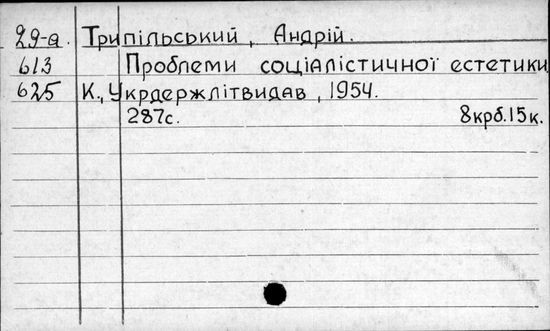 29-а. Трипільський, Андрій.
613 Проблеми соціалістичної естетики
625 К., Укрдержлітвидав, 1954.
287с. 8крб.15к.